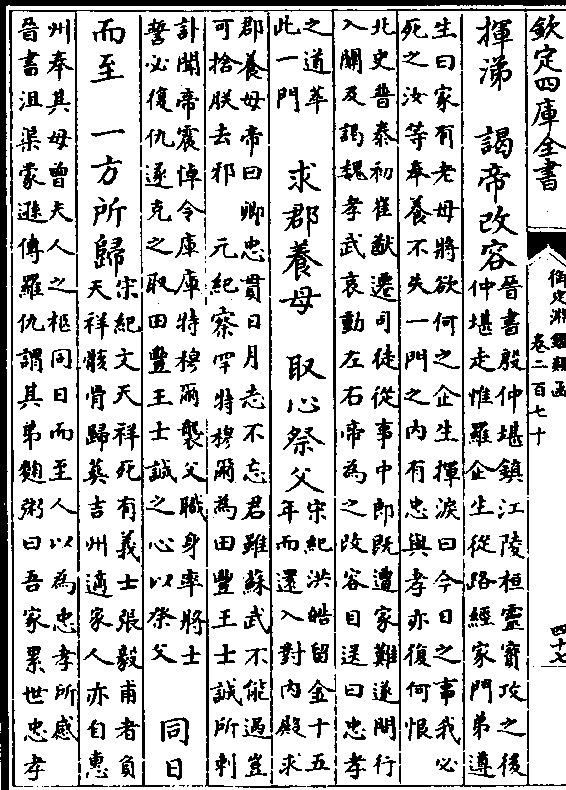 欽定四庫全書
御定淵鑑類函
卷二百七十
四十七
揮涕　謁帝改容
晉書殷仲堪鎮江陵桓靈寶攻之後
仲堪走惟羅企生從路經家門弟遵
生曰家有老母將欲何之企生揮淚曰今日之事我必
死之汝等奉養不失一門之内有忠與孝亦復何恨
北史普泰初崔猷遷司徒從事中郎既遭家難遂間行
入關及謁魏孝武哀動左右帝為之改容目送曰忠孝
之道萃
此一門
求郡養母　取心祭父
宋紀洪皓留金十五
年而還入對内殿求
郡養母帝曰卿忠貫日月志不忘君雖蘇武不能過豈
可捨朕去邪　元紀察罕特穆爾為田豐王士誠所刺
訃聞帝震悼令庫庫特穆爾襲父職身率將士
誓必復仇遂克之取田豐王士誠之心以祭父
同日
而至　一方所歸
宋紀文天祥死有義士張毅甫者負
天祥骸骨歸葬吉州適家人亦自惠
州奉其母曾夫人之柩同日而至人以為忠孝所感
晉書沮渠蒙遜傳羅仇謂其弟麴粥曰吾家累世忠孝